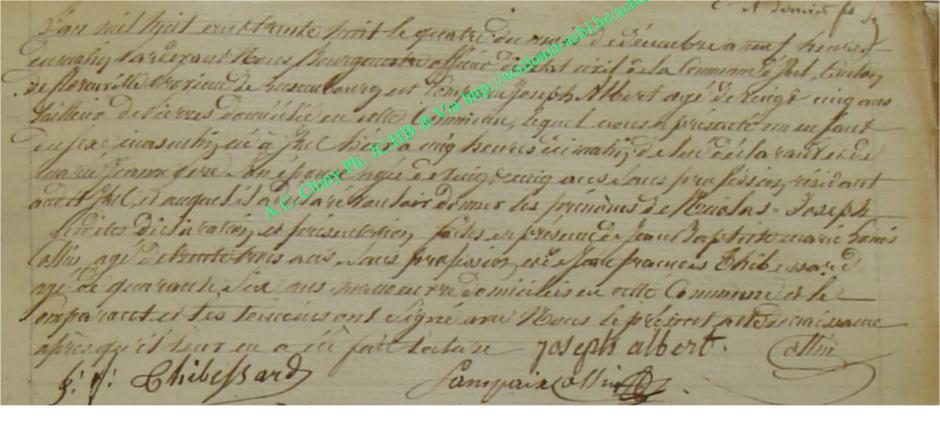 L'an mil huit cent trente huit le quatre du mois de décembre a neuf heures
du matin Pardevant Nous Bourgmestre officier de l'état civil de la Commune d'
de Province de Luxembourg est Comparu Joseph Albert agé de vingt cinq ans
tailleur de pierres domicilié en cette Commune, lequel nous a presenté un enfant
du sexe masculin, né à cinq heures du matin, de lui déclarant et de
Marie Jeanne son épouse agée de vingt cinq ans sans profession, résidant
et auquel il a déclaré vouloir donner les prénoms de Nicolas-Joseph
déclaration et présentation faites en présence de Jean Baptiste marie
Collin agé de trente trois ans, sans profession, et de Jean françois Thibessard
agé de quarante six ans domiciliés en cette Commune et le
Comparant et les témoins ont signé avec Nous le présent acte de naissance
après qu'il leur en a été fait lecture joseph albert. Collin
Thibessard
A.C. Chiny Ph. JC.HB ® Via http://wallonia-asbl.be/acte